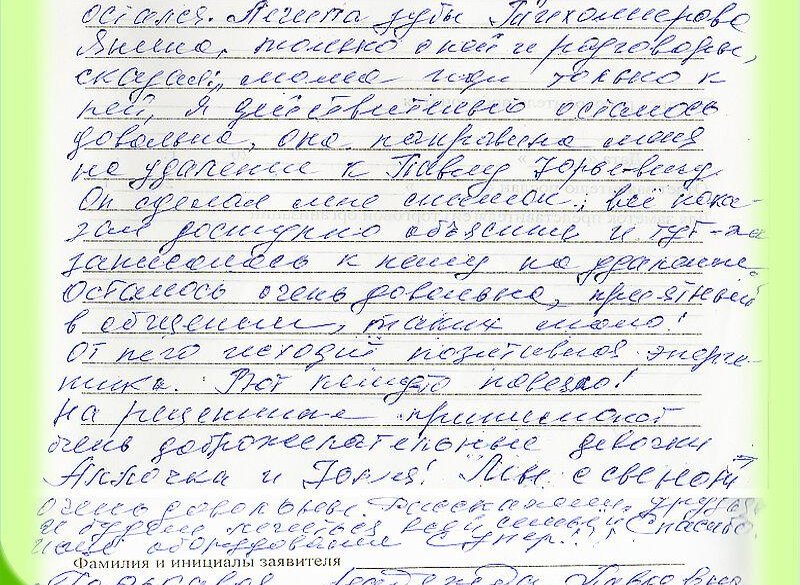 остался. Лечила зубы Тихомирова
Янина, только о ней и разговоры,
сказали, мама иди только к
ней, я действительно осталась
довольна, она направила меня
на удаление к Павлу Юрьевичу.
Он сделал мне снимок, все пока-
зал доступно объяснил и тут-же
записалась к нему на удаление.
Осталась очень довольна, приятный
в общении, таких мало!
От него исходит позитивная энерге-
тика. Вот кому-то повезло!
На рецепшене принимают
очень доброжелательные девочки
Аллочка и Юля! Мы с
очень довольны.
и будем лечиться всей семьей Спасибо.
оборудование Супер!!!
Фамилия и инициалы заявителя
Надежда Павловна